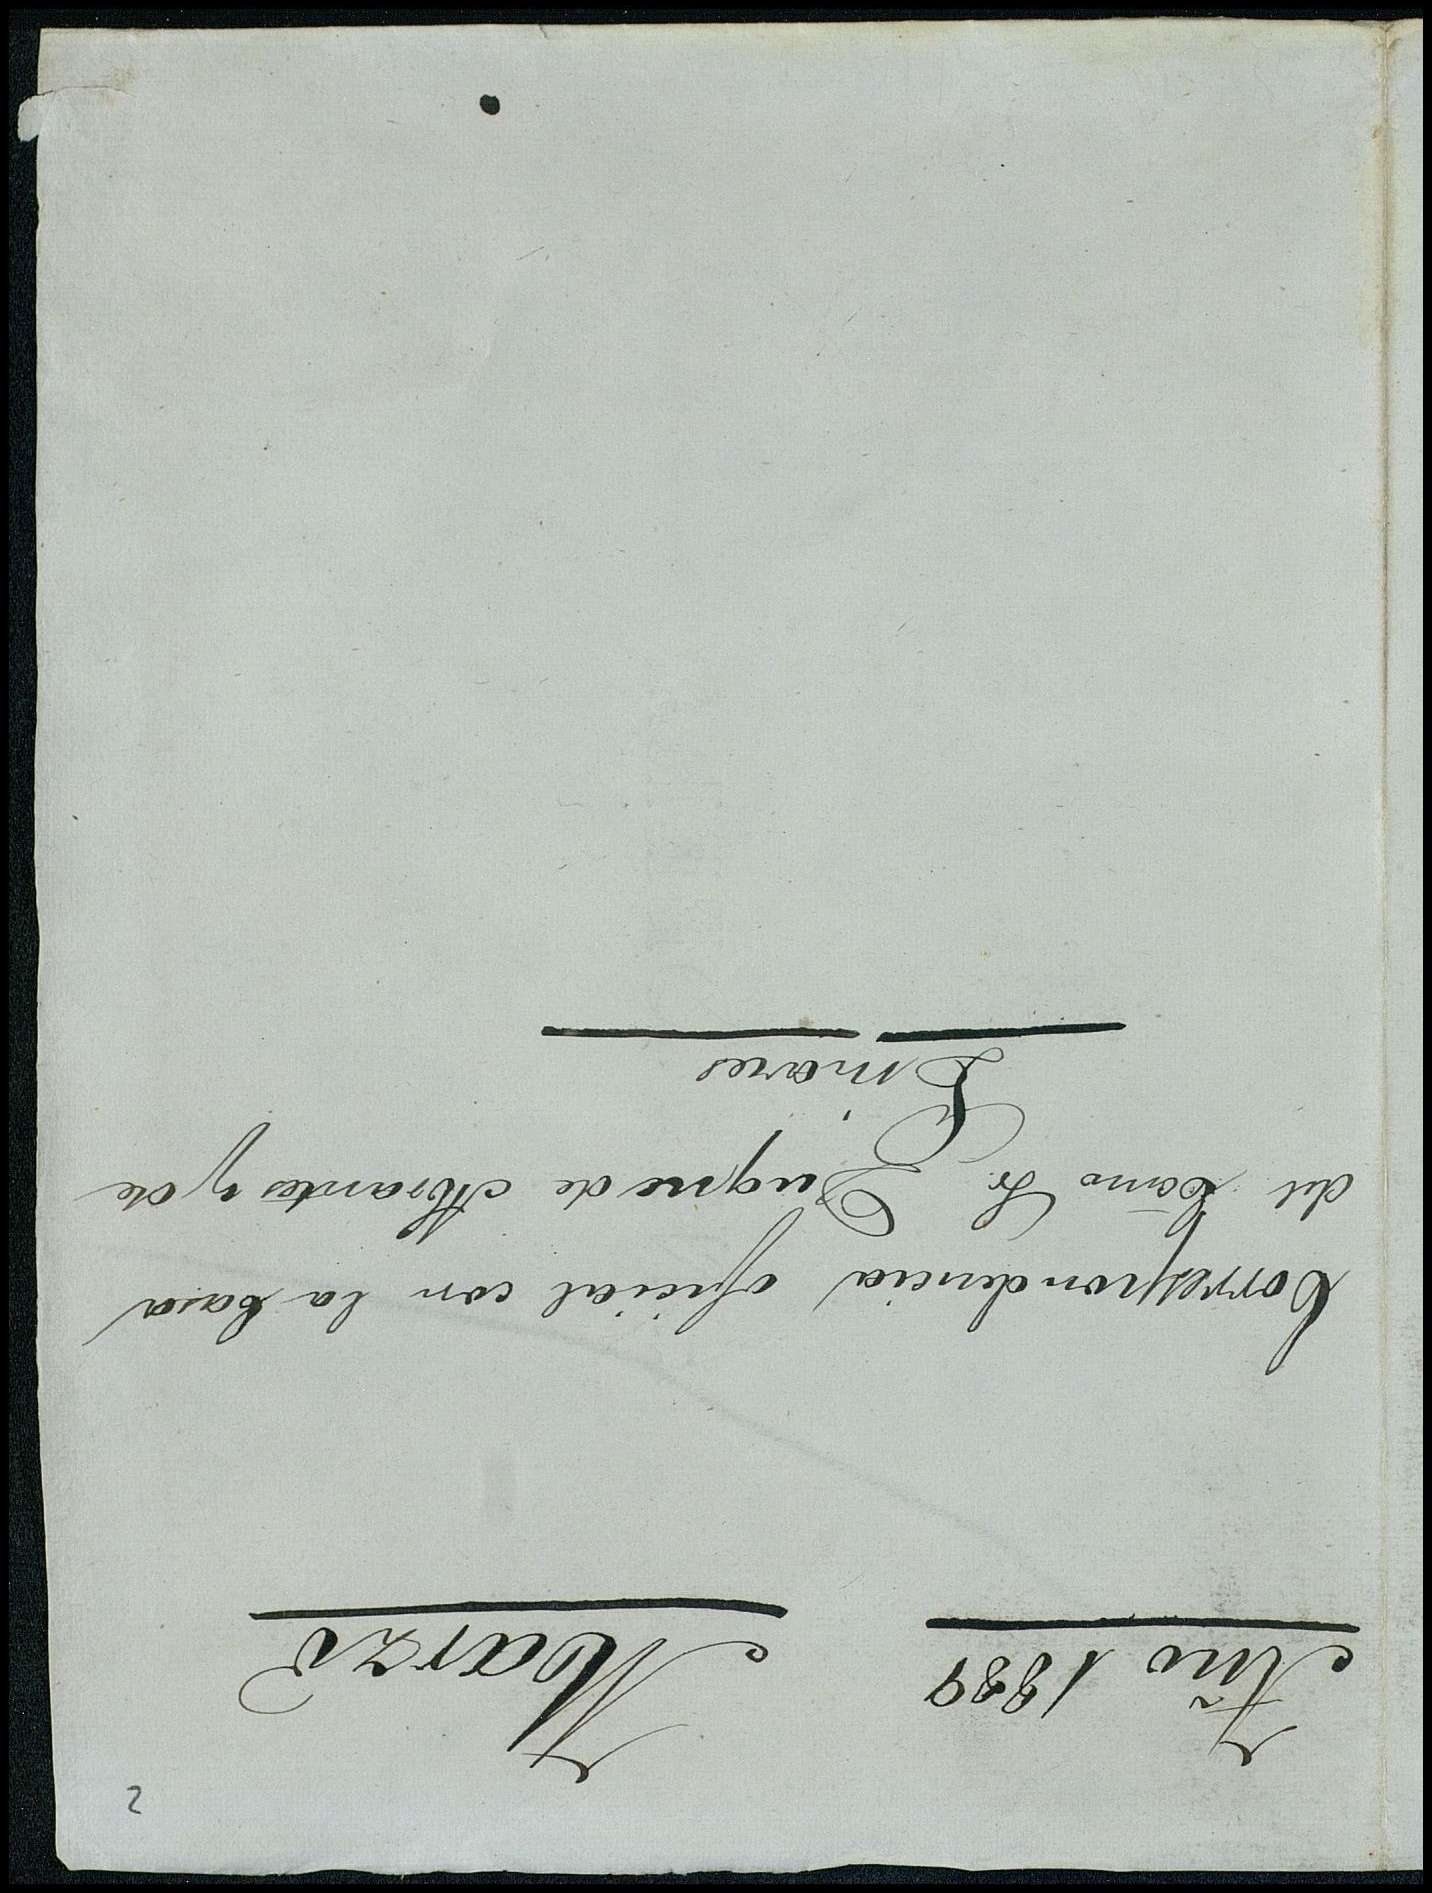 Año 1889
Marzo
Correspondencia oficial con la Casa
del Exmo Sr. Duque de Abrantes y de
Linares
2